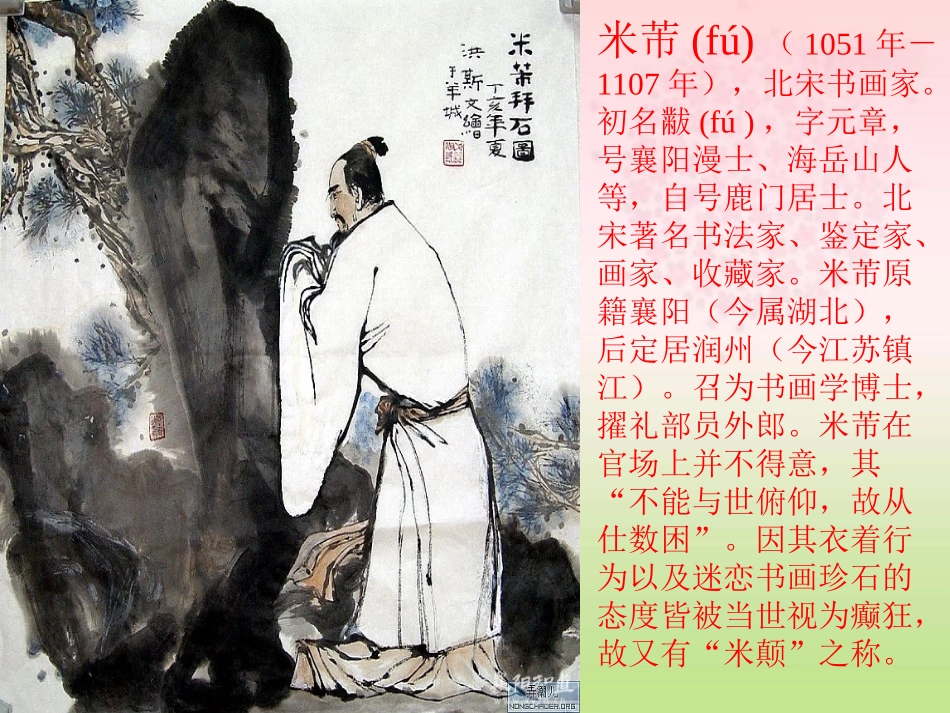 米芾拜石圖
丁亥年夏
洪斯文繪
于羊城
米芾 (fú) （ 1051 年－
1107 年），北宋书画家。
初名黻 (fú ) ，字元章，
号襄阳漫士、海岳山人
等，自号鹿门居士。北
宋著名书法家、鉴定家、
画家、收藏家。米芾原
籍襄阳（今属湖北），
后定居润州（今江苏镇
江）。召为书画学博士，
擢礼部员外郎。米芾在
官场上并不得意，其
“不能与世俯仰，故从
仕数困”。因其衣着行
为以及迷恋书画珍石的
态度皆被当世视为癫狂，
故又有“米颠”之称。
弄潮儿
NONGSCHAOER.ORG